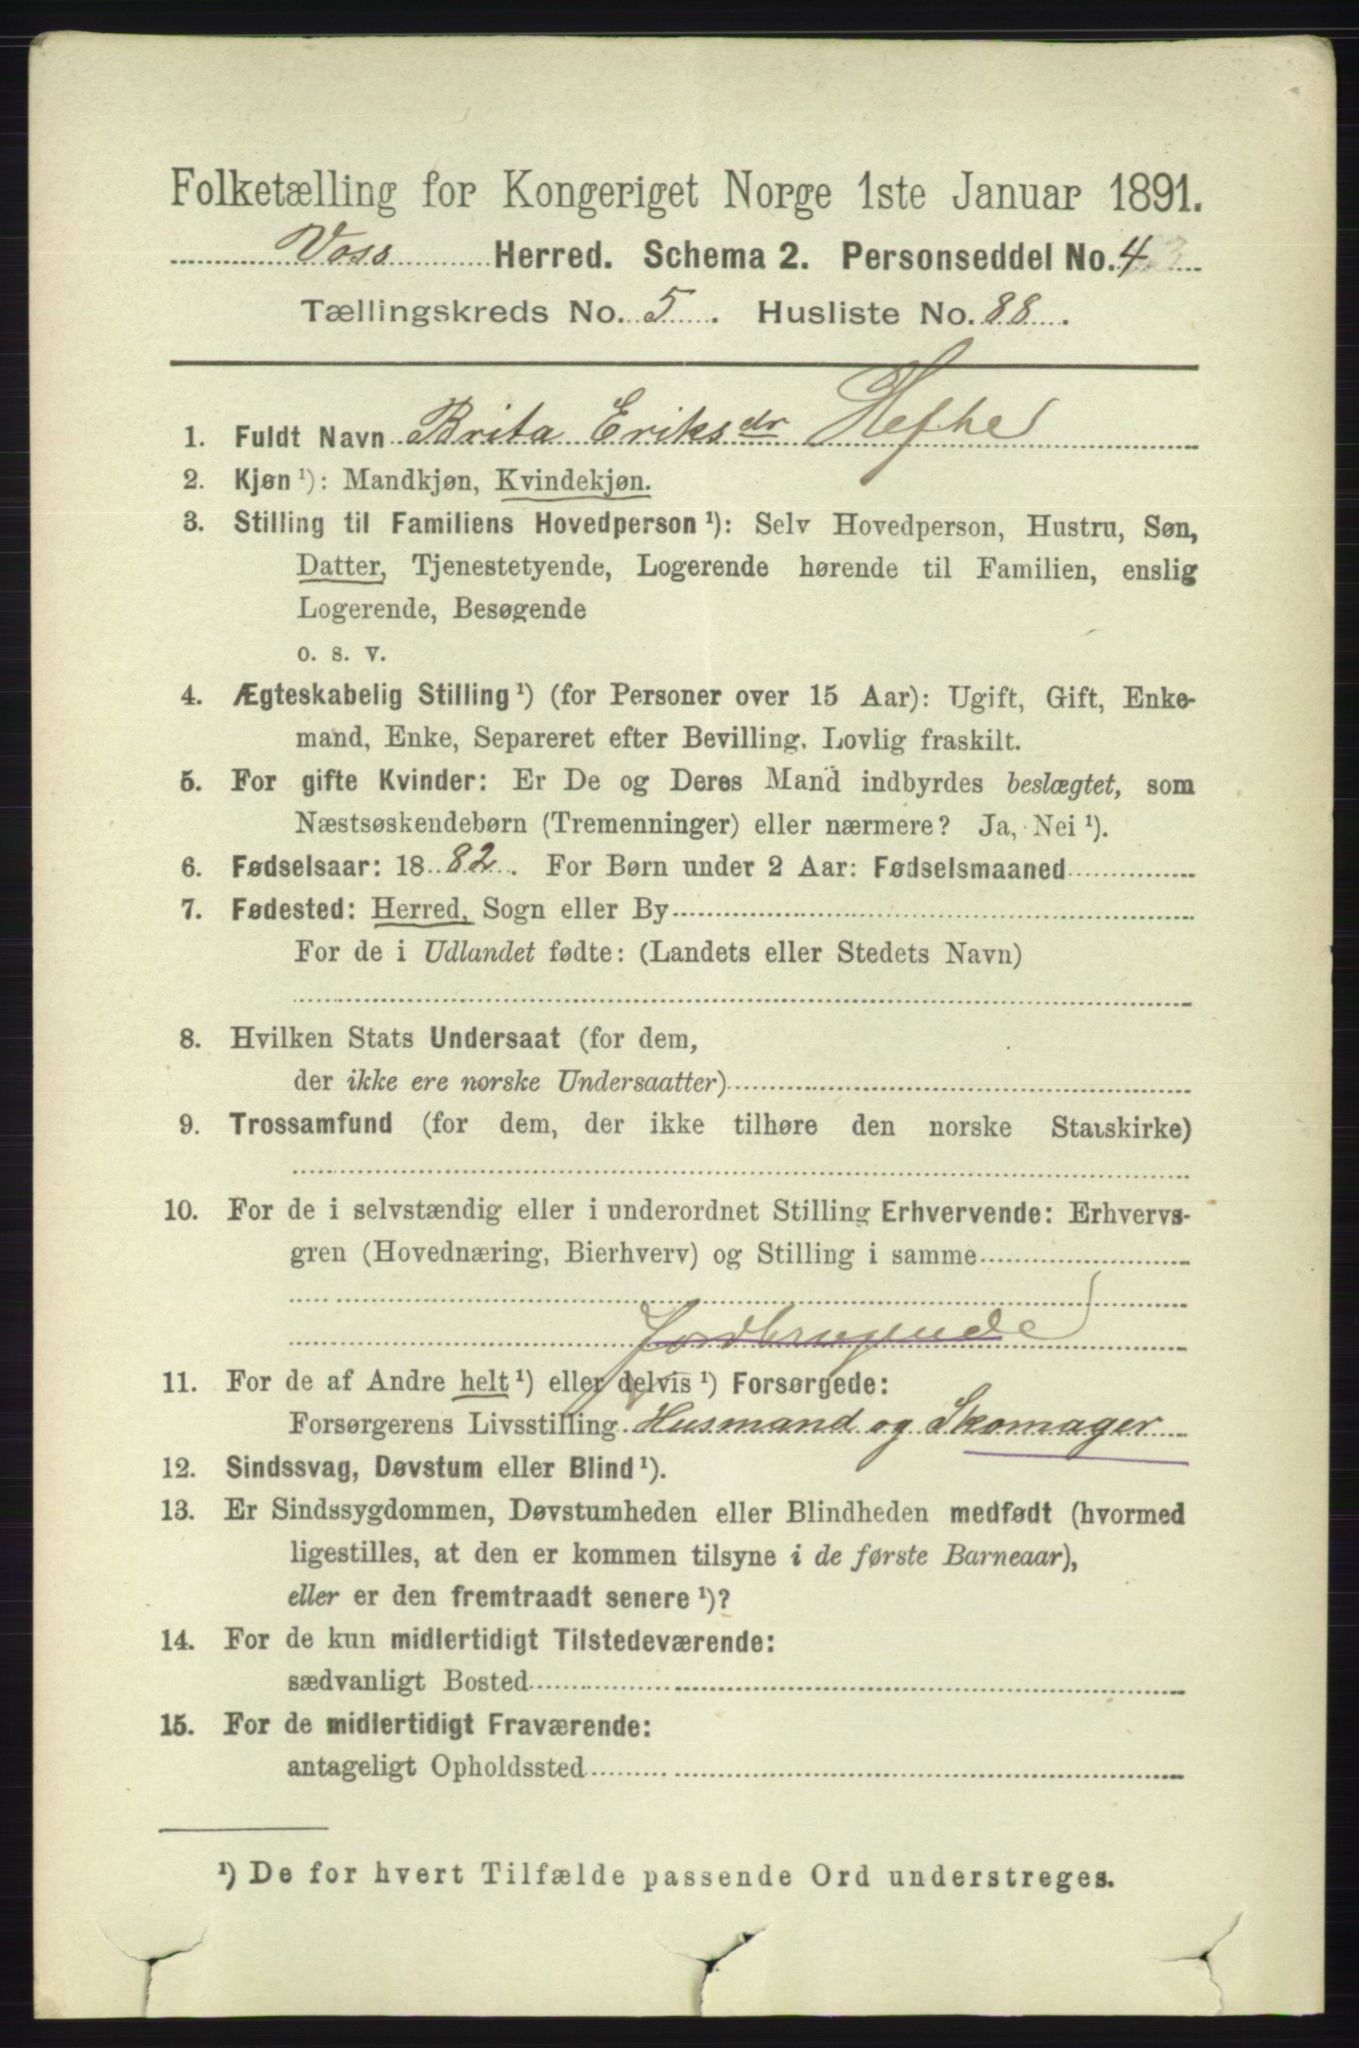 Folketælling for Kongeriget Norge 1ste Januar 1891.
Voss Herred. Schema 2. Personseddel No. 4
Tællingskreds No. 5. Husliste No. 88.
1. Fuldt Navn Brita Eriksdr Hefte
2. Kjøn ¹): Mandkjøn, Kvindekjøn.
3. Stilling til Familiens Hovedperson ¹): Selv Hovedperson, Hustru, Søn,
Datter, Tjenestetyende, Logerende hørende til Familien, enslig
Logerende, Besøgende
o. s. v.
4. Ægteskabelig Stilling ¹) (for Personer over 15 Aar): Ugift, Gift, Enke-
mand, Enke, Separeret efter Bevilling. Lovlig fraskilt.
5. For gifte Kvinder: Er De og Deres Mand indbyrdes beslægtet, som
Næstsøskendebørn (Tremenninger) eller nærmere? Ja, Nei ¹).
6. Fødselsaar: 1882. For Børn under 2 Aar: Fødselsmaaned
7. Fødested: Herred, Sogn eller By
For de i Udlandet fødte: (Landets eller Stedets Navn)
8. Hvilken Stats Undersaat (for dem,
der ikke ere norske Undersaatter)
9. Trossamfund (for dem, der ikke tilhøre den norske Statskirke)
10. For de i selvstændig eller i underordnet Stilling Erhvervende: Erhvervs-
gren (Hovednæring, Bierhverv) og Stilling i samme
Jordbrugende
11. For de af Andre helt ¹) eller delvis ¹) Forsørgede:
Forsørgerens Livsstilling Husmand og Skomager
12. Sindssvag, Døvstum eller Blind ¹).
13. Er Sindssygdommen, Døvstumheden eller Blindheden medfødt (hvormed
ligestilles, at den er kommen tilsyne i de første Barneaar),
eller er den fremtraadt senere ¹)?
14. For de kun midlertidigt Tilstedeværende:
sædvanligt Bosted
15. For de midlertidigt Fraværende:
antageligt Opholdssted
¹) De for hvert Tilfælde passende Ord understreges.